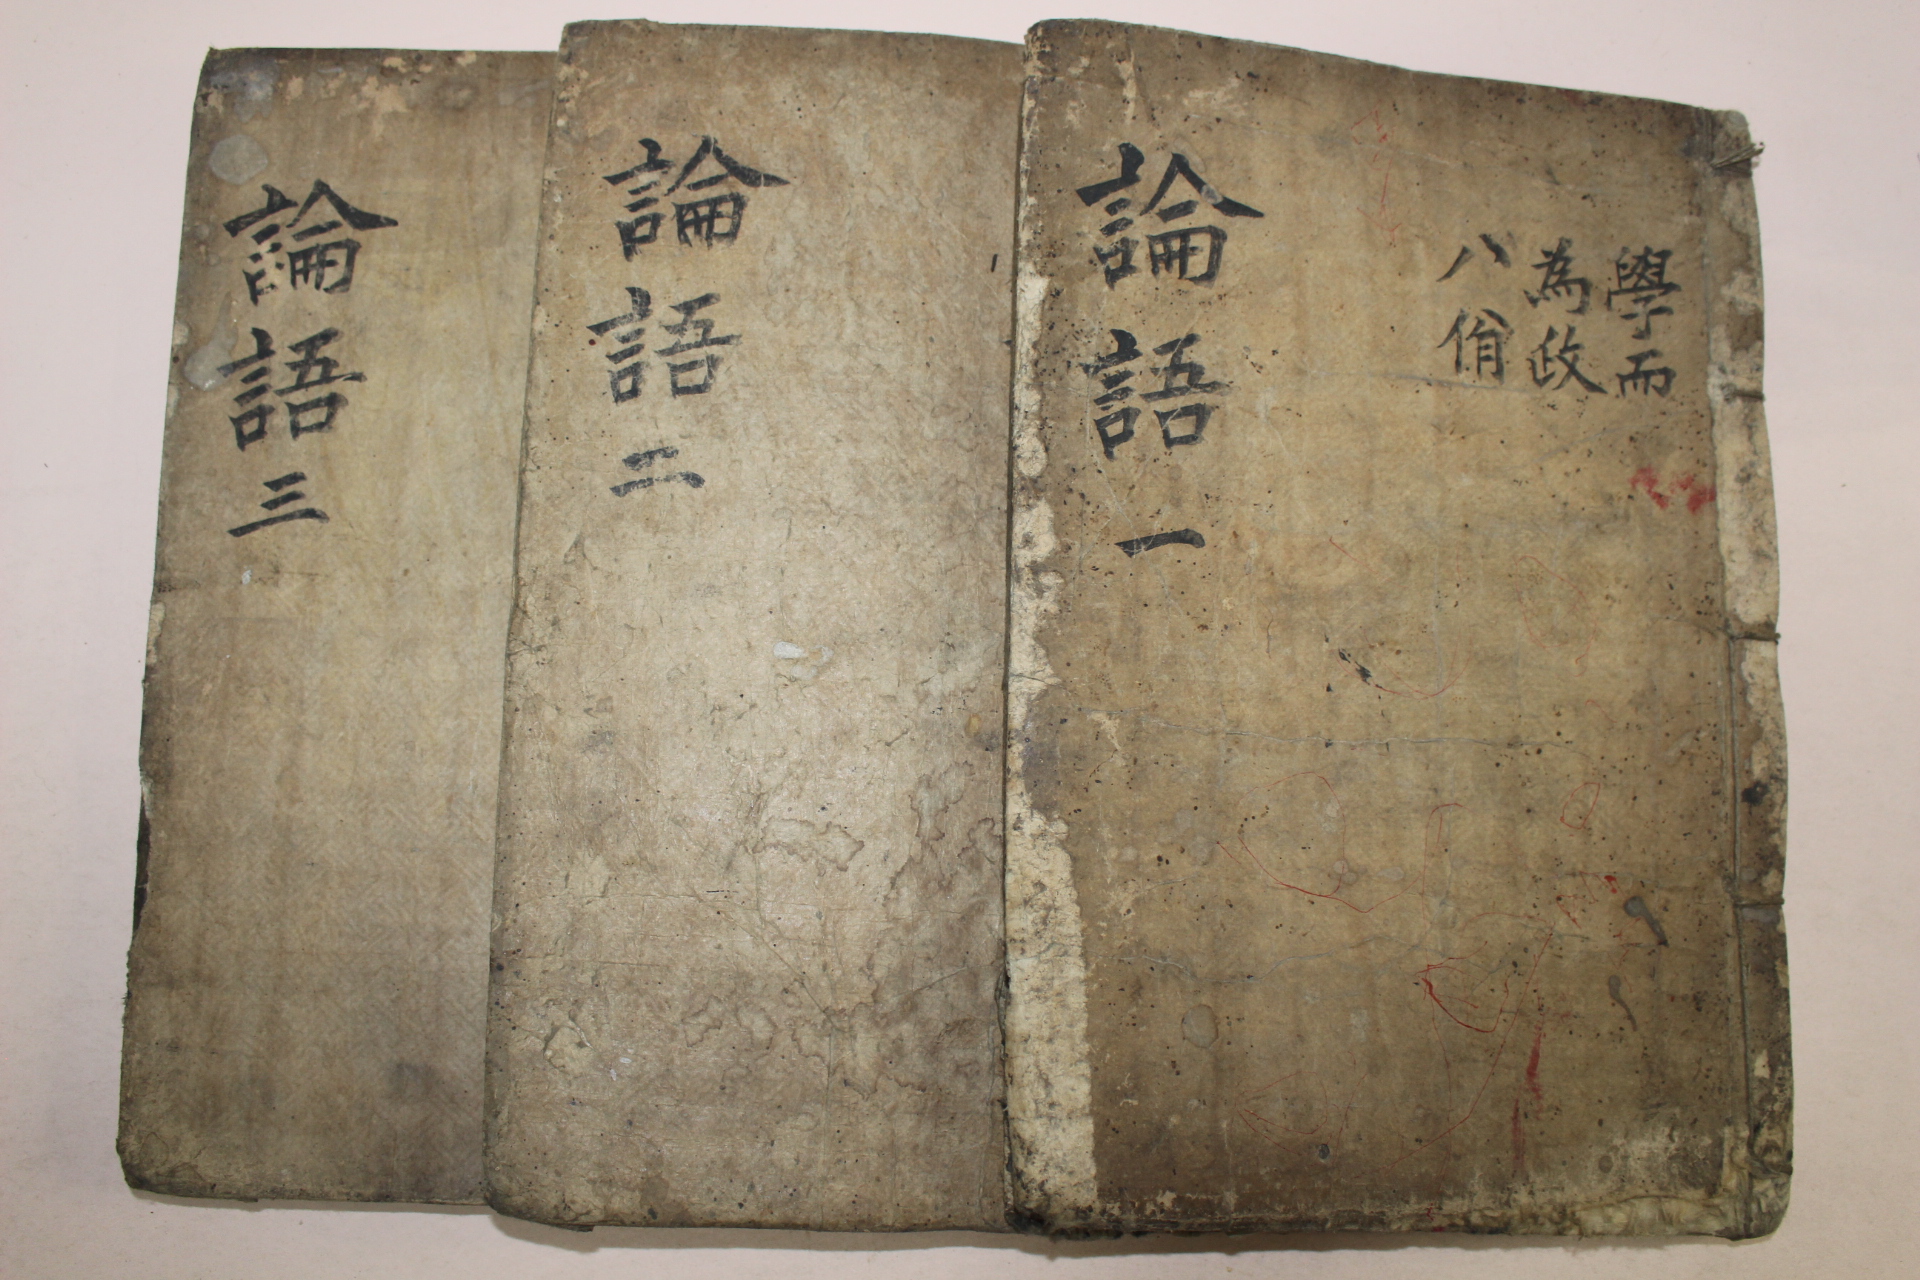 學而
為政
八佾
論語一
論語二
論語三